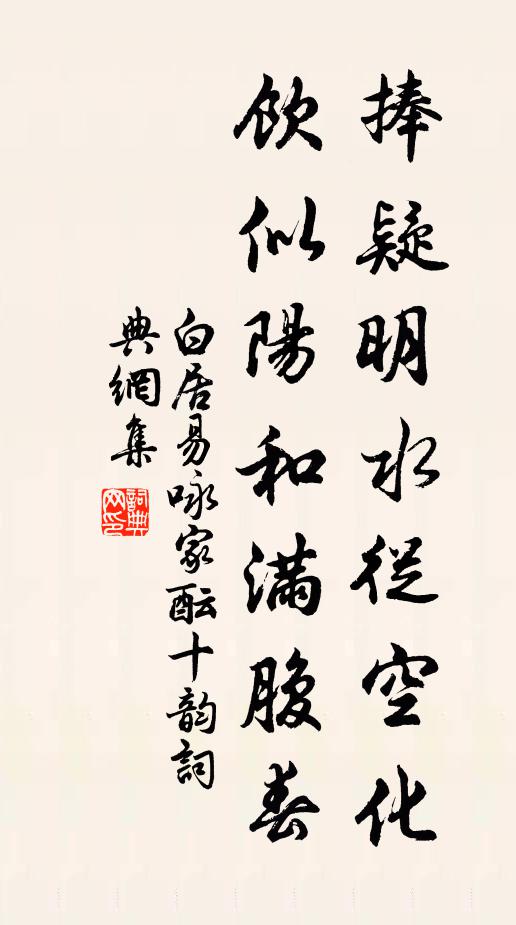 捧疑明水從空化
飲似陽和滿腹春
白居易咏家酝十韵詞
典網集
詞典
网印